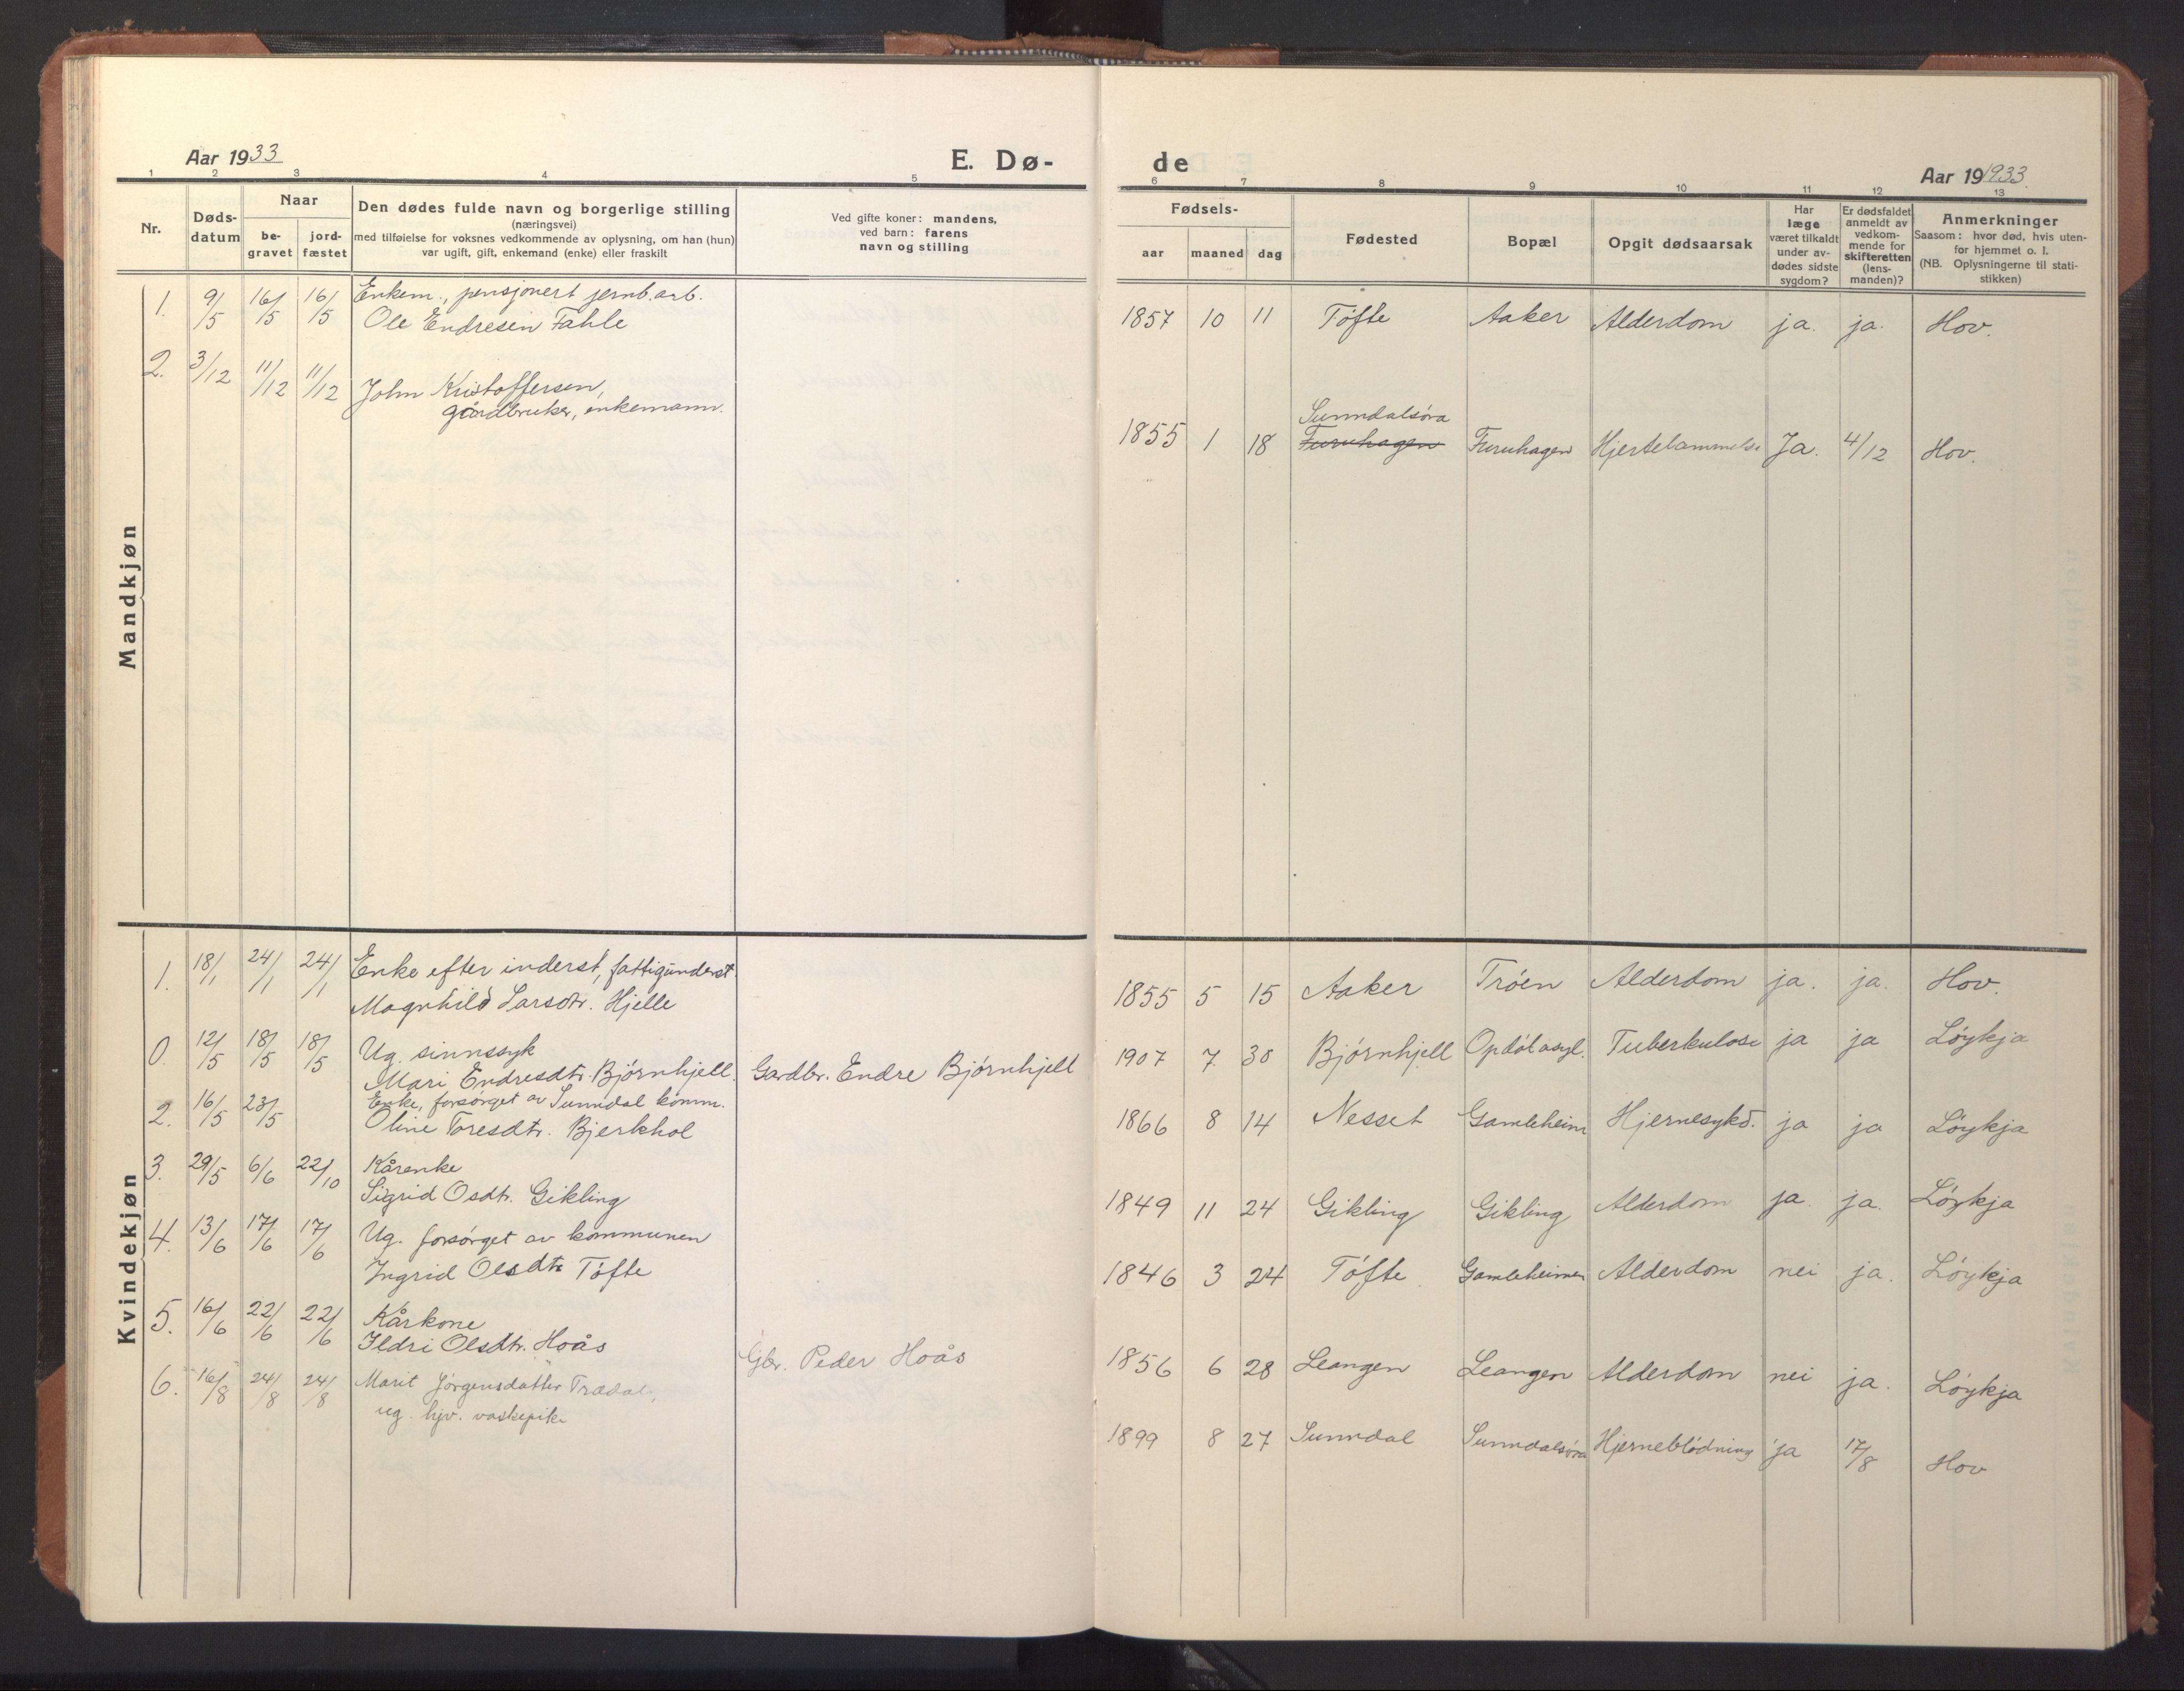 Aar 1933
E. Dø-
de
Aar 19 1933.
1 2 3 4 5 6 7 8 9 10 11 12 13
Nr.
Døds-
datum
Naar
be-
gravet
jord-
fæstet
Den dødes fulde navn og borgerlige stilling
(næringsvei)
med tilføielse for voksnes vedkommende av oplysning, om han (hun)
var ugift, gift, enkemand (enke) eller fraskilt
Ved gifte koner: mandens,
ved barn: farens
navn og stilling
Fødsels-
aar maaned dag
Fødested
Bopæl
Opgit dødsaarsak
Har
læge
været tilkaldt
under av-
dødes sidste
sygdom?
Er dødsfaldet
anmeldt av
vedkom-
mende for
skifteretten
(lens-
manden)?
Anmerkninger
Saasom: hvor død, hvis uten-
for hjemmet o. l.
(NB. Oplysningerne til stati-
stikken)
Mandkjøn
1. 9/5 16/5 16/5 Enkem., pensjonert jernb.arb.
Ole Endresen Fahle
1857 10 11 Tøfte Aaker Alderdom ja. ja. Hov.
2. 3/12 11/12 11/12 John Kristoffersen,
gårdbruker, enkemann.
Sunndalsøra
1855 1 18 Furuhagen Furuhagen Hjertelammelse Ja. 4/12 Hov.
Kvindekjøn
1. 18/1 24/1 24/1 Enke efter inderst, fattigunderst.
Magnhild Larsdtr. Hjelle
1855 5 15 Aaker Trøen Alderdom ja. ja. Hov.
0. 12/5 18/5 18/5 Ug. sinnssyk
Mari Endresdtr. Bjørnhjell. Gardbr. Endre Bjørnhjell
1907 7. 30 Bjørnhjell Opdøl asyl. Tuberkulose ja ja Løykja
2. 16/5 23/5 Enke, forsørget av Sunndal komm.
Oline Toresdtr. Bjerkhol
1866 8 14 Nesset Gamleheim Hjernesykd. ja ja Løykja
3. 29/5 6/6 22/10 Kårenke
Sigrid Osdtr. Gikling
1849 11 24 Gikling Gikling Alderdom ja. ja. Løykja
4. 13/6 17/6 17/6 Ug. forsørget av kommunen
Ingrid Olsdtr Tøfte
1846 3 24 Tøfte. Gamleheimen Alderdom nei ja. Løykja
5. 16/6 22/6 22/6 Kårkone
Ildri Olsdtr. Hoås Gbr. Peder Hoås
1856 6 28 Leangen Leangen Alderdom nei ja. Løykja
6. 16/8 24/8 24/8 Marit Jørgensdatter Trædal,
ug. hjv. vaskepike
1899 8 27 Sunndal Sunndalsøra Hjerneblødning ja 17/8 Hov